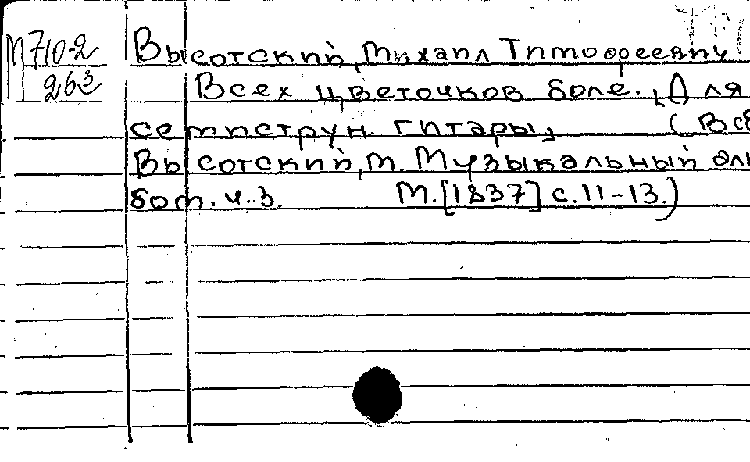 М710-2
263
Высотский, Михаил Тимофеевич
Всех цветочков боле. [Для
семиструн. гитары]
(В сб
Высотский, М. Музыкальный аль
бом. ч. 3. М. [1837] с. 11-13.)